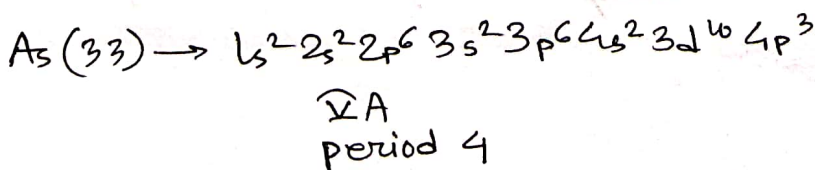 As (33) → 1s² 2s² 2p⁶ 3s² 3p⁶ 4s² 3d¹⁰ 4p³
VA
period 4